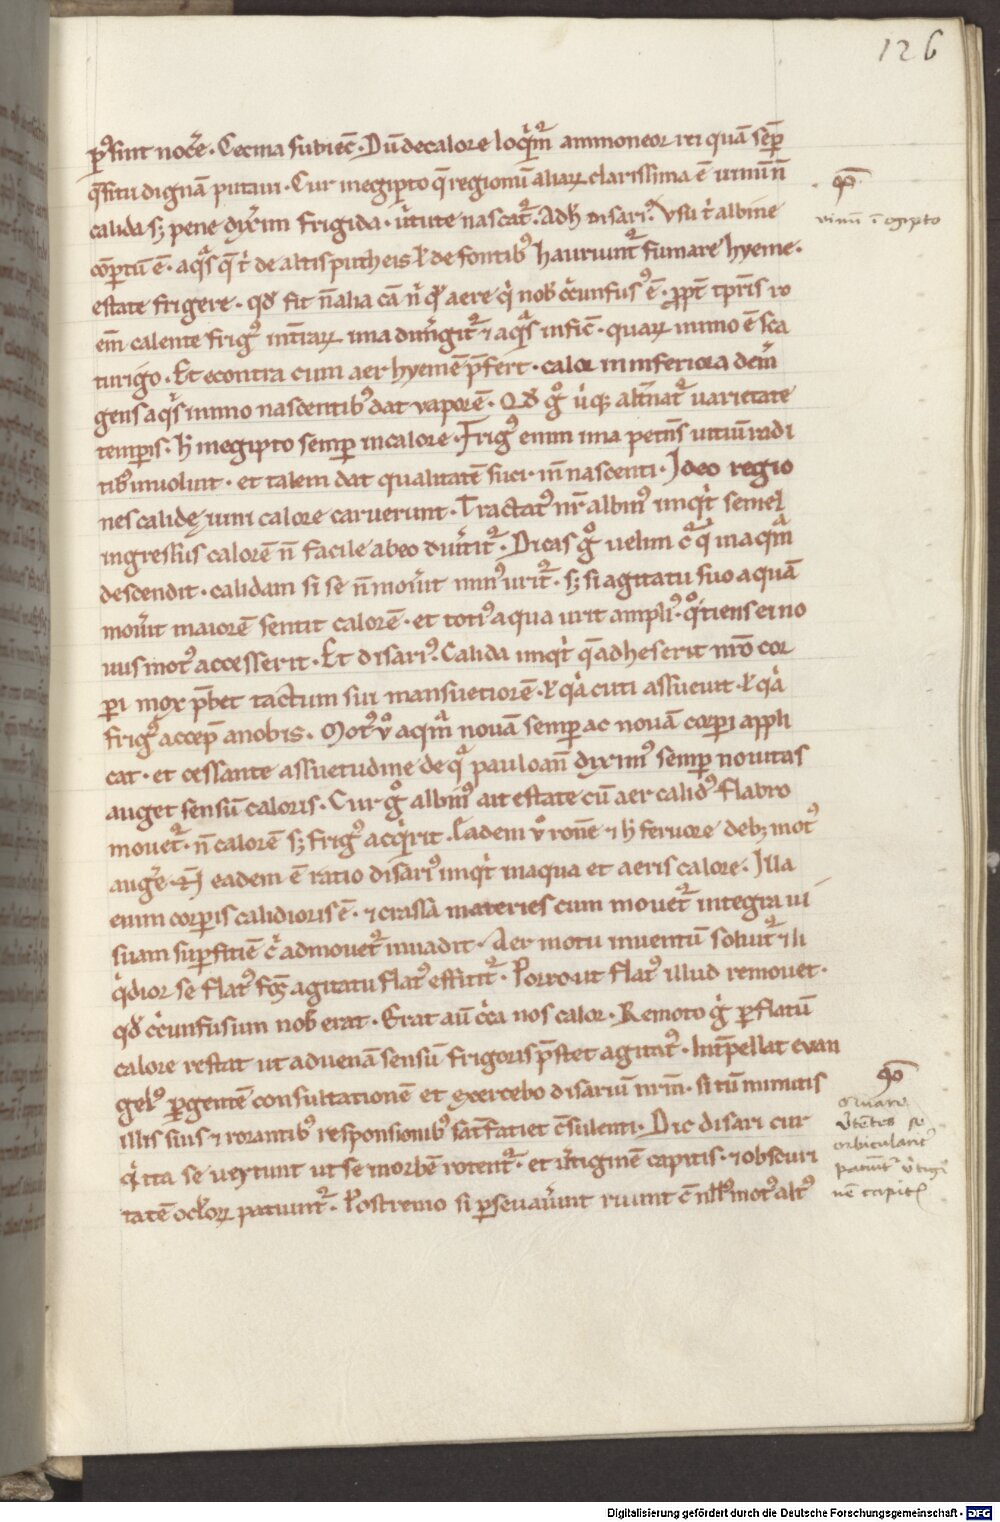 126
p̄sint nocē͛. Cecina subiec̄. Dū de calore loqͥmͬ ammoneor rei quā sēp
q̄situ dignā putaui. Cur in egipto q̄ regionū aliaꝝ clarissima ē uinū n̄
calida sꝫ pene dix̄im frigida. ũtute nascatͬ. Adħ disariꝰ. Vsu t̄ albine
cōptū ē. aqͣs q̄ t̄ de altis putheis ł de fontibꝰ hauriuntͬ fumare hyeme.
estate frigere. qđ fit n̄ alia cā nͥ qđ aere qͥ nob̄ cͥcunfusꝰ ē. ꝓpt̄ tp̄ris ro
em̄ calente frigꝰ int̄raꝝ ima dim̄gitͬ ⁊ aqͣs infic̄. quaꝝ in imo ē sca
turigo. Et econtra cum aer hyemē p̄fert. calor in inferiora dem̄
gens aqͣs in imo nascentibꝰ dat vaporē. Qđ gͦ ubiqꝫ alt̄natͬ uarietate
temporis. ħ in egipto semꝑ in calore. Frigꝰ enim ima petens uitiū radi
cibꝰ inuoluit. et talem dat qualitatē suci. in̄ nascenti. Ideo regio
nes calidę uini calore caruerunt. Tractatꝰ nr̄ albinꝰ inqͥt semel
ingressus calorē n̄ facile abeo diũtitͬ. Dicas gͦ uelim cͬ qͥ in aqͣm
descendit. calidam si se n̄ mouit̄ minꝰ uritͬ. sꝫ si agitatu suo aquā
mouit̄ maiorē sentit calorē. et totiꝰ aqua urit ampliꝰ. qͦtiens ei no
uus motꝰ accesserit. Et disariꝰ. Calida inqͥt q̄ adheserit nr̄o cor
ꝑi mox p̄bet tactum sui mansuetiorē. ł qͥa cuti assueuit. ł qͥa
frigꝰ accep̄ a nobis. Motꝰ vͦ aqͣm nouā semꝑ ac nouā corꝑi appli
cat. et cessante assuetudine de qͣ paulo an̄ diximꝰ semꝑ nouitas
auget sensū caloris. Cur gͦ albinꝰ ait estate cū aer calidꝰ flabro
mouetͬ. n̄ calorē sꝫ frigꝰ acqͥrit. Eadem vͦ ron̄e ⁊ ħ feruore debꝫ motꝰ
augē͛. N̄ eadem ē ratio disariꝰ inqͥt in aqua et aeris calore. Illa
enim corꝑis calidioris ē. ⁊ crassa materies cum mouetͬ integra ui
suam suꝑficiē cͥ admouetͬ inuadit. Aer motu in uentū soluitͬ ⁊ li
qͥdior se flatꝰ fc̄s agitatu flatꝰ efficitͬ. Porro ut flatꝰ illud remouet.
qđ cͥcunfusum nob̄ erat. Erat aū cͥca nos calor. Remoto gͥ ꝑ flatū
calore restat ut aduenā sensū frigoris p̄stet agitatꝰ. Int̄pellat euan
gelꝰ ꝑgentē consultationē et exercebo disariū nr̄m. si tū minutis
illis suis ⁊ rorantibꝰ responsionibꝰ satͥfaciet c̄sulenti. Dic disari cur
qͥ ita se uertunt ut se in orbē rotentͬ. et ũtiginē capitis. ⁊ obscuri
tatē oclōꝝ patiuntͬ. Postremo si ꝑseuaũint ruunt c̄ nłłꝰ motꝰ altꝰ
qͦ
vinū ī egipto
qͦ
ũtētes se
orbiculariͭ
patiūtͬ ũtigi
nē capitꝭ
Digitalisierung gefördert durch die Deutsche Forschungsgemeinschaft - DFG